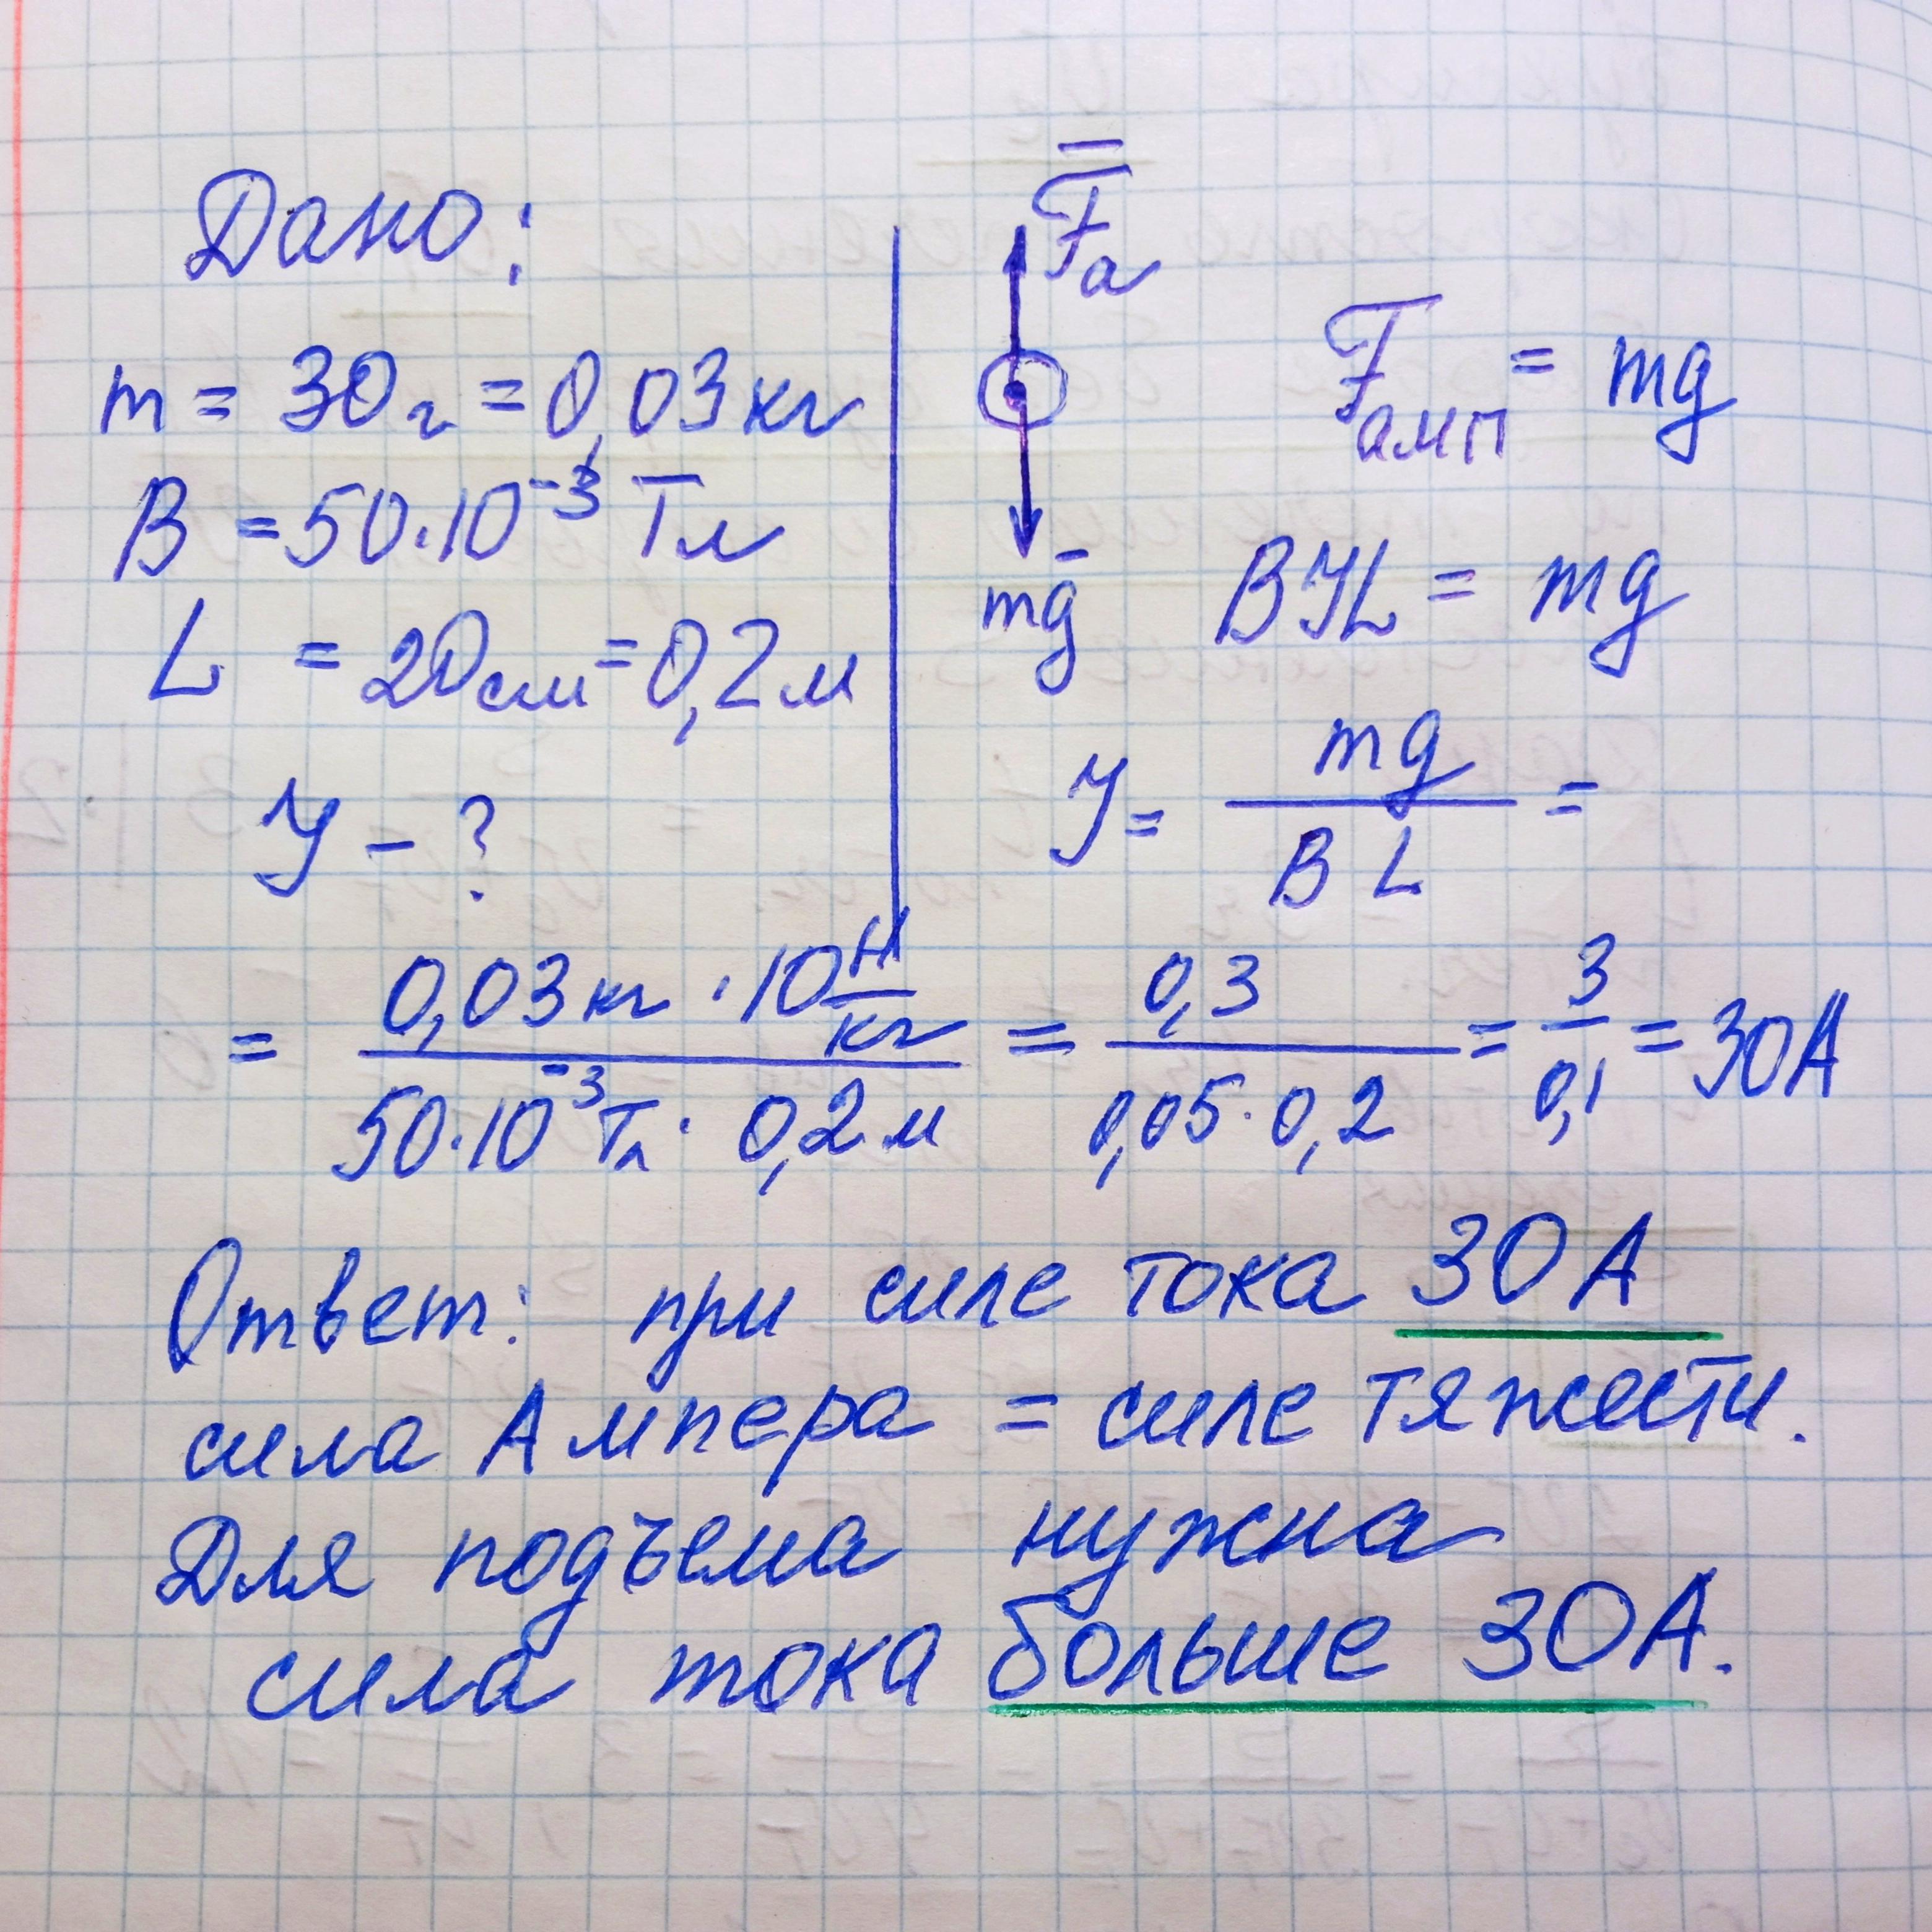 Дано:
m = 30г = 0,03кг
B = 50·10⁻³ Тл
L = 20см = 0,2м
У - ?
F̄a
mḡ
Fамп = mg
BУL = mg
У = mg / BL =
= 0,03кг · 10 Н/кг / 50·10⁻³Тл · 0,2м = 0,3 / 0,05·0,2 = 3 / 0,1 = 30А
Ответ: при силе тока 30А
сила Ампера = силе тяжести.
Для подъема нужна
сила тока больше 30А.